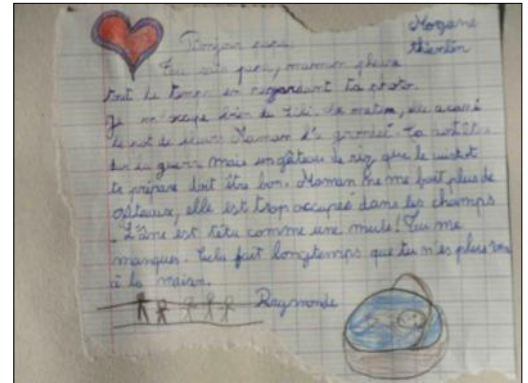 Morgane
Bonjour papa.
Tu sais papa, maman pleure
tout le temps en regardant ta photo.
Je m'occupe bien de Lili. Ce matin, elle a cassé
le pot de fleurs. Maman l'a grondée. Ta
sur la guerre mais un gâteau de riz que le cuistot
te prépare doit être bon. Maman ne me fait plus de
gâteaux, elle est trop occupée dans les champs
. L'âne est têtu comme une mule! Tu me
manques. Cela fait longtemps que tu n'es plus
à la maison.
Raymonde